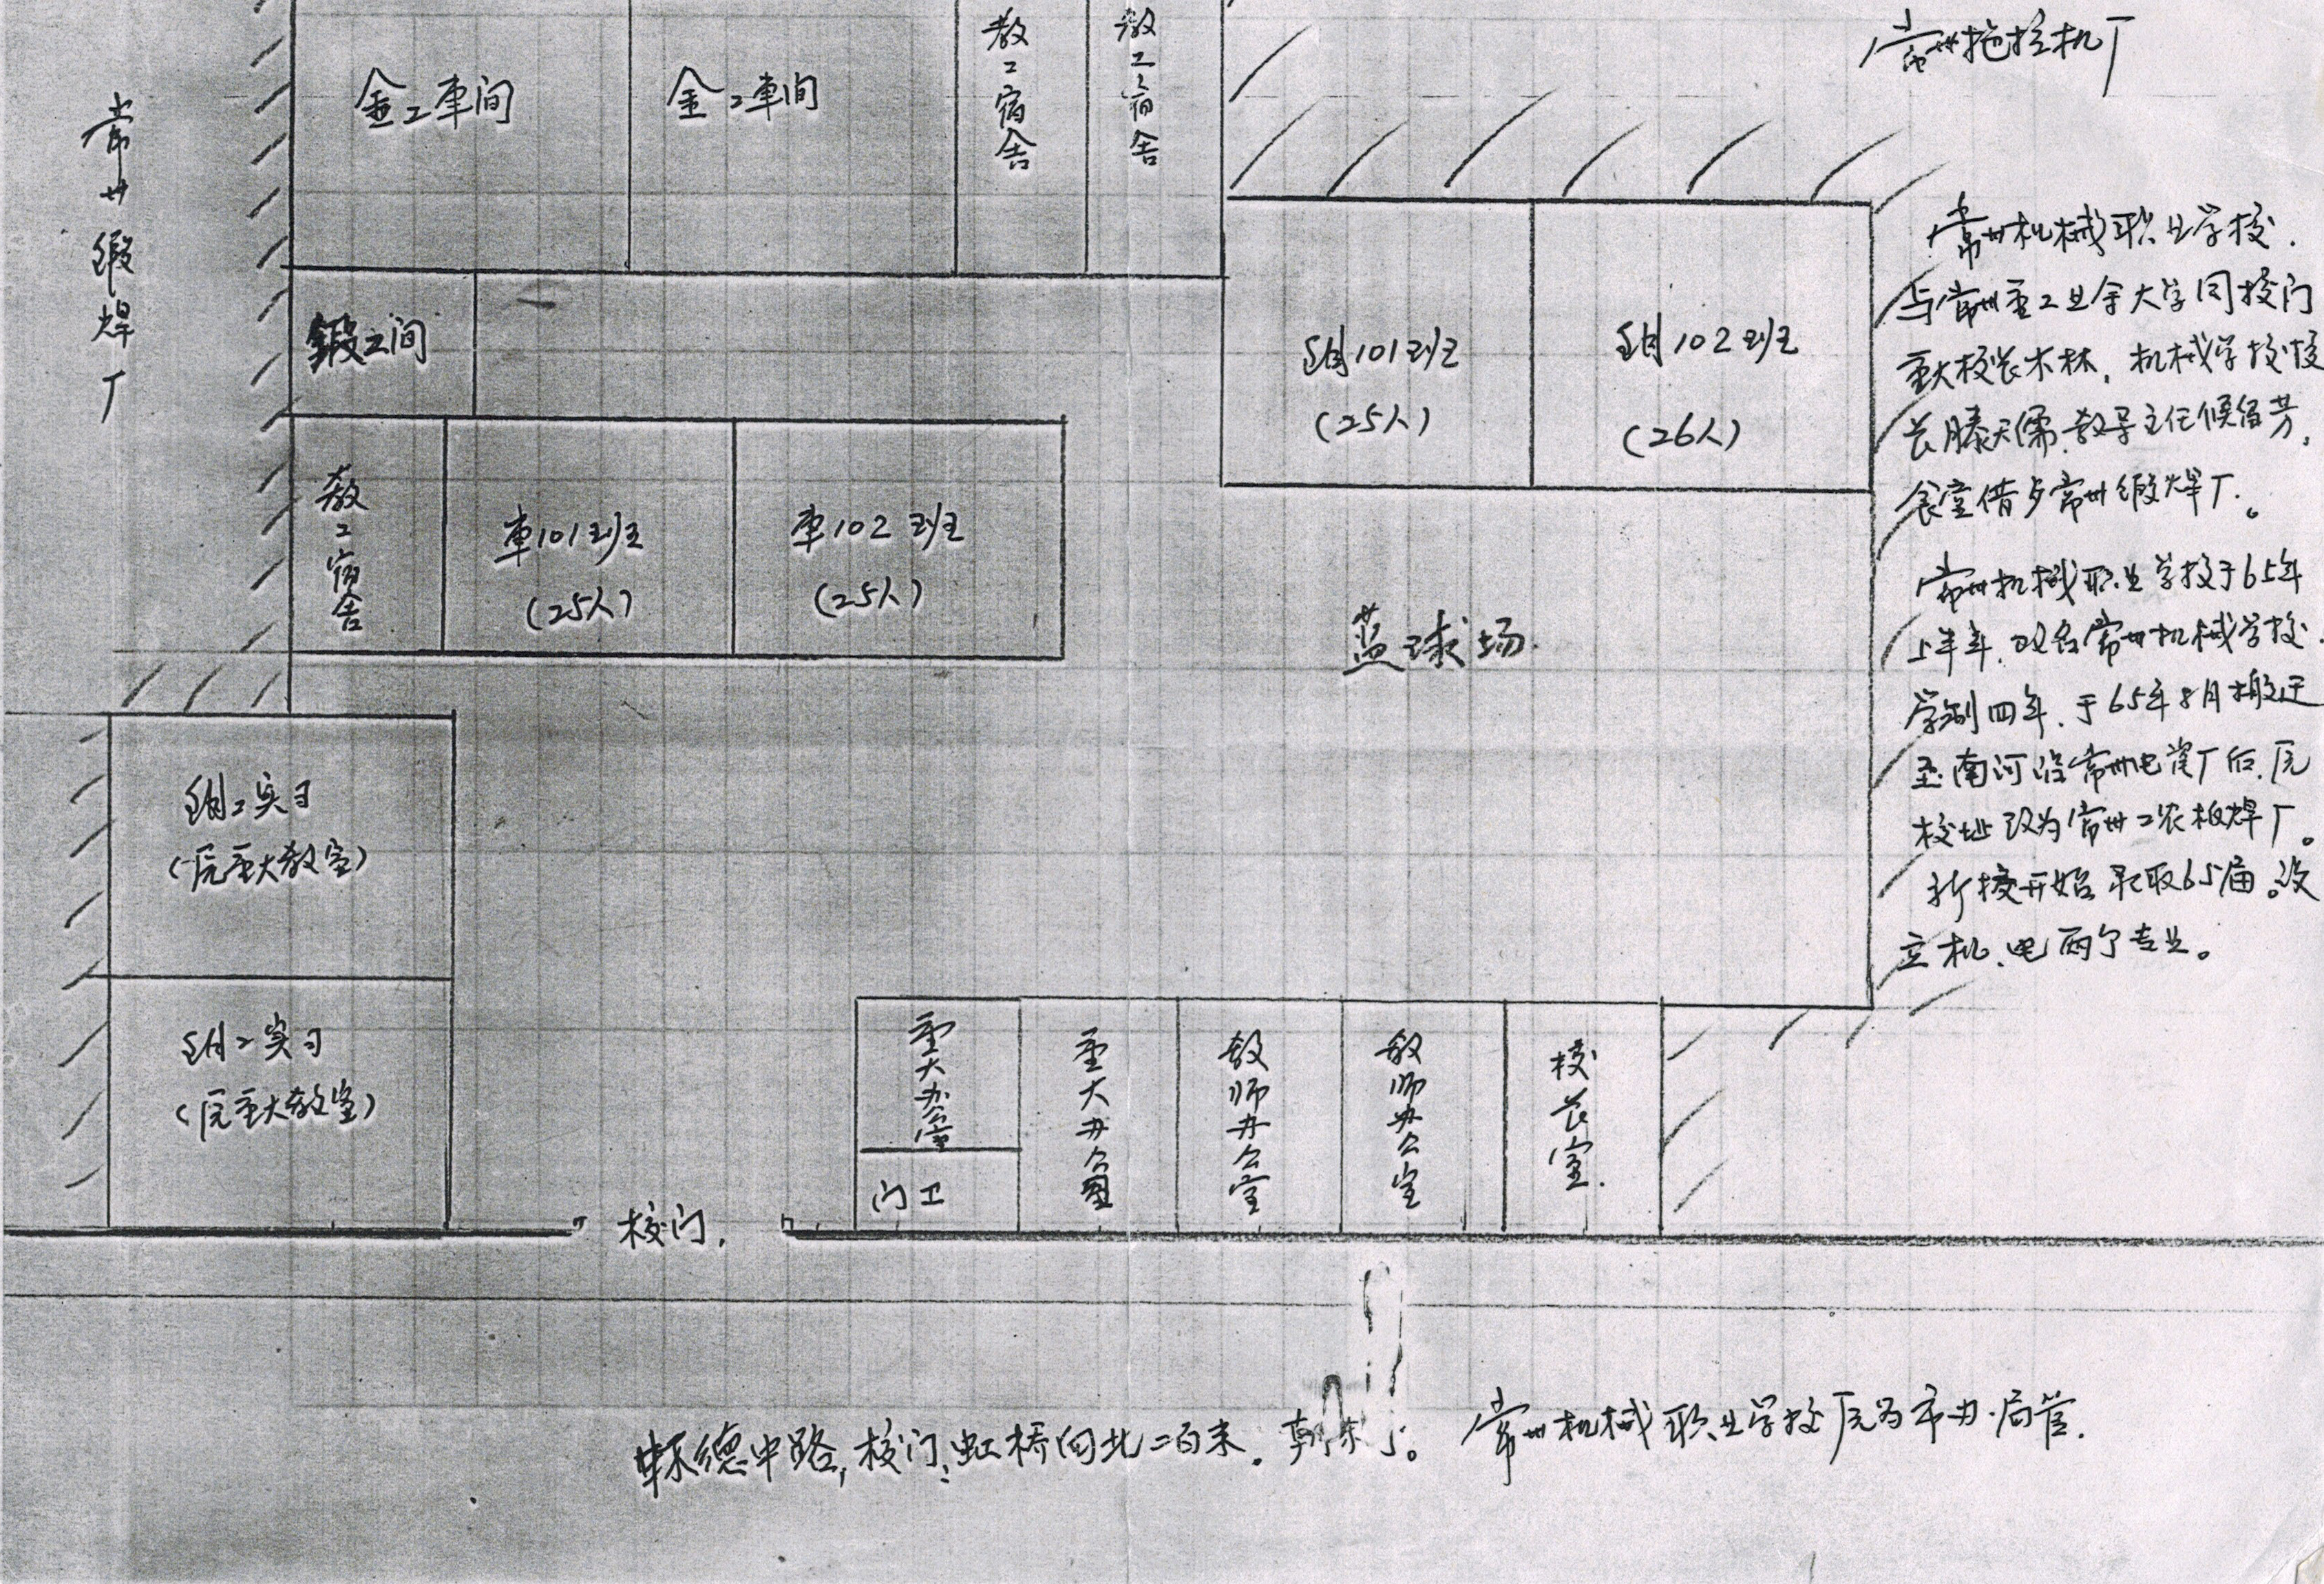 常州拖拉机厂
常州锻焊厂
金工車间
金工車间
教工宿舍
教工宿舍
鍛工间
钳101班
(25人)
钳102班
(26人)
教工宿舍
車101班
(25人)
車102班
(25人)
蓝球场.
钳工实习
(原重大教室)
钳工实习
(原重大教室)
重大办公室
门卫
重大办公室
教师办公室
教师办公室
校长室.
校门.
常州机械职业学校.
与常州重工业余大学同校门
重大校长木林，机械学校校
长滕天儒.教导主任候留芳，
食堂借于常州锻焊厂。
常州机械职业学校于65年
上半年.改名常州机械学校.
学制四年.于65年8月搬迁
至南河沿常州电瓷厂后.原
校址改为常州工农板焊厂。
新校开始录取65届。设
立机、电两个专业。
怀德中路,校门:虹桥向北二百米。朝东门。
常州机械职业学校原为市办.局管.